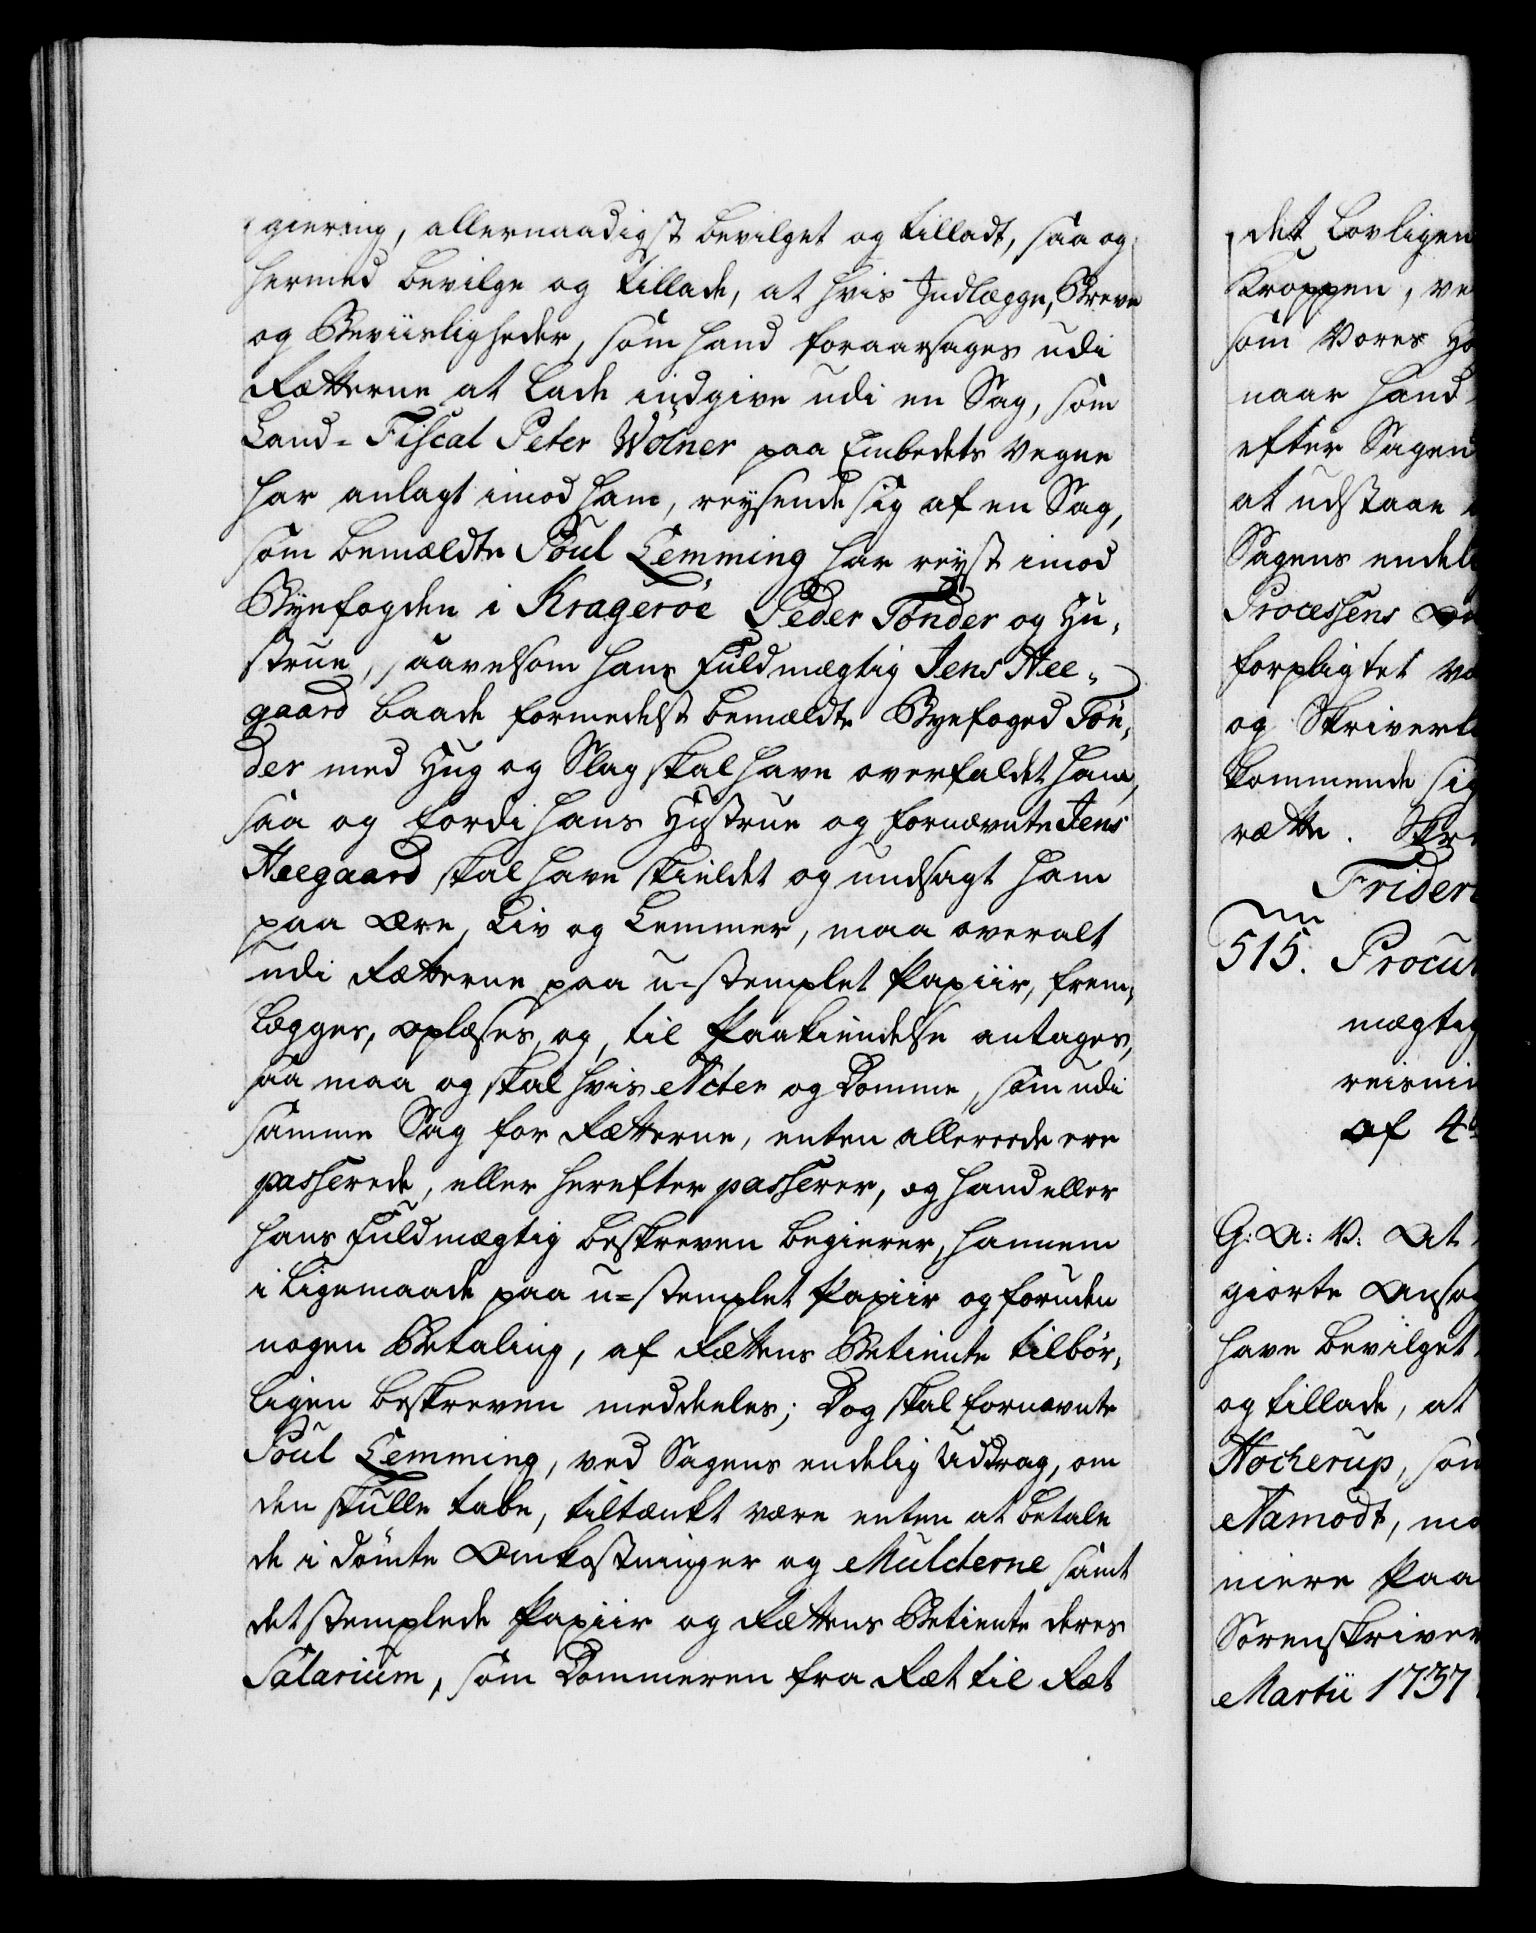 giering, allernaadigst bevilget og tilladt, saa og
hermed bevilge og tillade, at hvis Indlægge, Breve
og Beviisligheder, som hand foraarsages udi
Rætterne at lade indgive udi en Sag, som
Land-Fiscal Peter Wölner paa Embedets Vegne
har anlagt imod ham, reysende sig af en Sag,
som bemældte Poul Lemming har reyst imod
Byefogden i Krageröe Peder Tönder og Hu-
strue, saavelsom hans Fuldmægtig Jens Hee-
gaard baade formedelst bemældte Byefoged Tön-
der med Hug og Slag skal have overfaldet ham,
saa og fordi hans Hustrue og fornævnte Jens
Heegaard skal have skieldet og undsagt ham
paa Ære, Liv og Lemmer, maa overalt
udi Rætterne paa u-stemplet Papiir, frem-
lægges, oplæses, og, til Paakiendelse antages,
saa maa og skal hvis Acter og Domme, som udi
samme Sag for Rætterne, enten allereede ere
passerede, eller herefter passerer, og hand eller
hans Fuldmægtig beskreven begierer, hannem
i ligemaade paa u-stemplet Papiir og foruden
nogen Betaling, af Rættens Betiente tilbör-
ligen beskreven meddeeles; Dog skal fornævnte
Poul Lemming, ved Sagens endelig Uddrag, om
den skulle tabe, tiltænkt være enten at betale
de i dömte Omkostninger og Mulcterne samt
det stemplede Papiir og Rættens Betiente deres
Salarium, som Dommeren fra Ræt til Ræt
det lovligen
Kroppen, ve
som Vores Ho
naar hand
efter Sagen
at udstaae
Sagens endel
Processens
forpligtet
og Skriverl
kommende sig
rætte. Skr
Frideri
515. Procu
mægtig
reisnin
af 4
G: A: V: At
giorte Ansøg
have bevilget
og tillade, at
Hocherup, som
Namodt, ma
niere Paa
Sorenskriver
Martii 1737